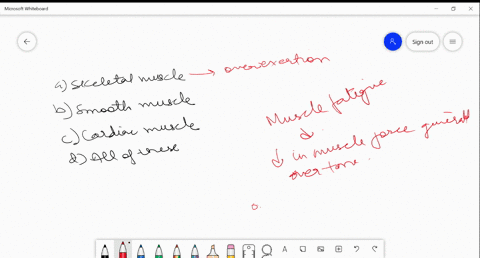 Microsoft Whiteboard
Sign out
a) Skeletal muscle → overexertion
b) Smooth muscle
c) Cardiac muscle
d) All of these
Muscle fatigue
↓
↓ in muscle force generated
over time.
o.